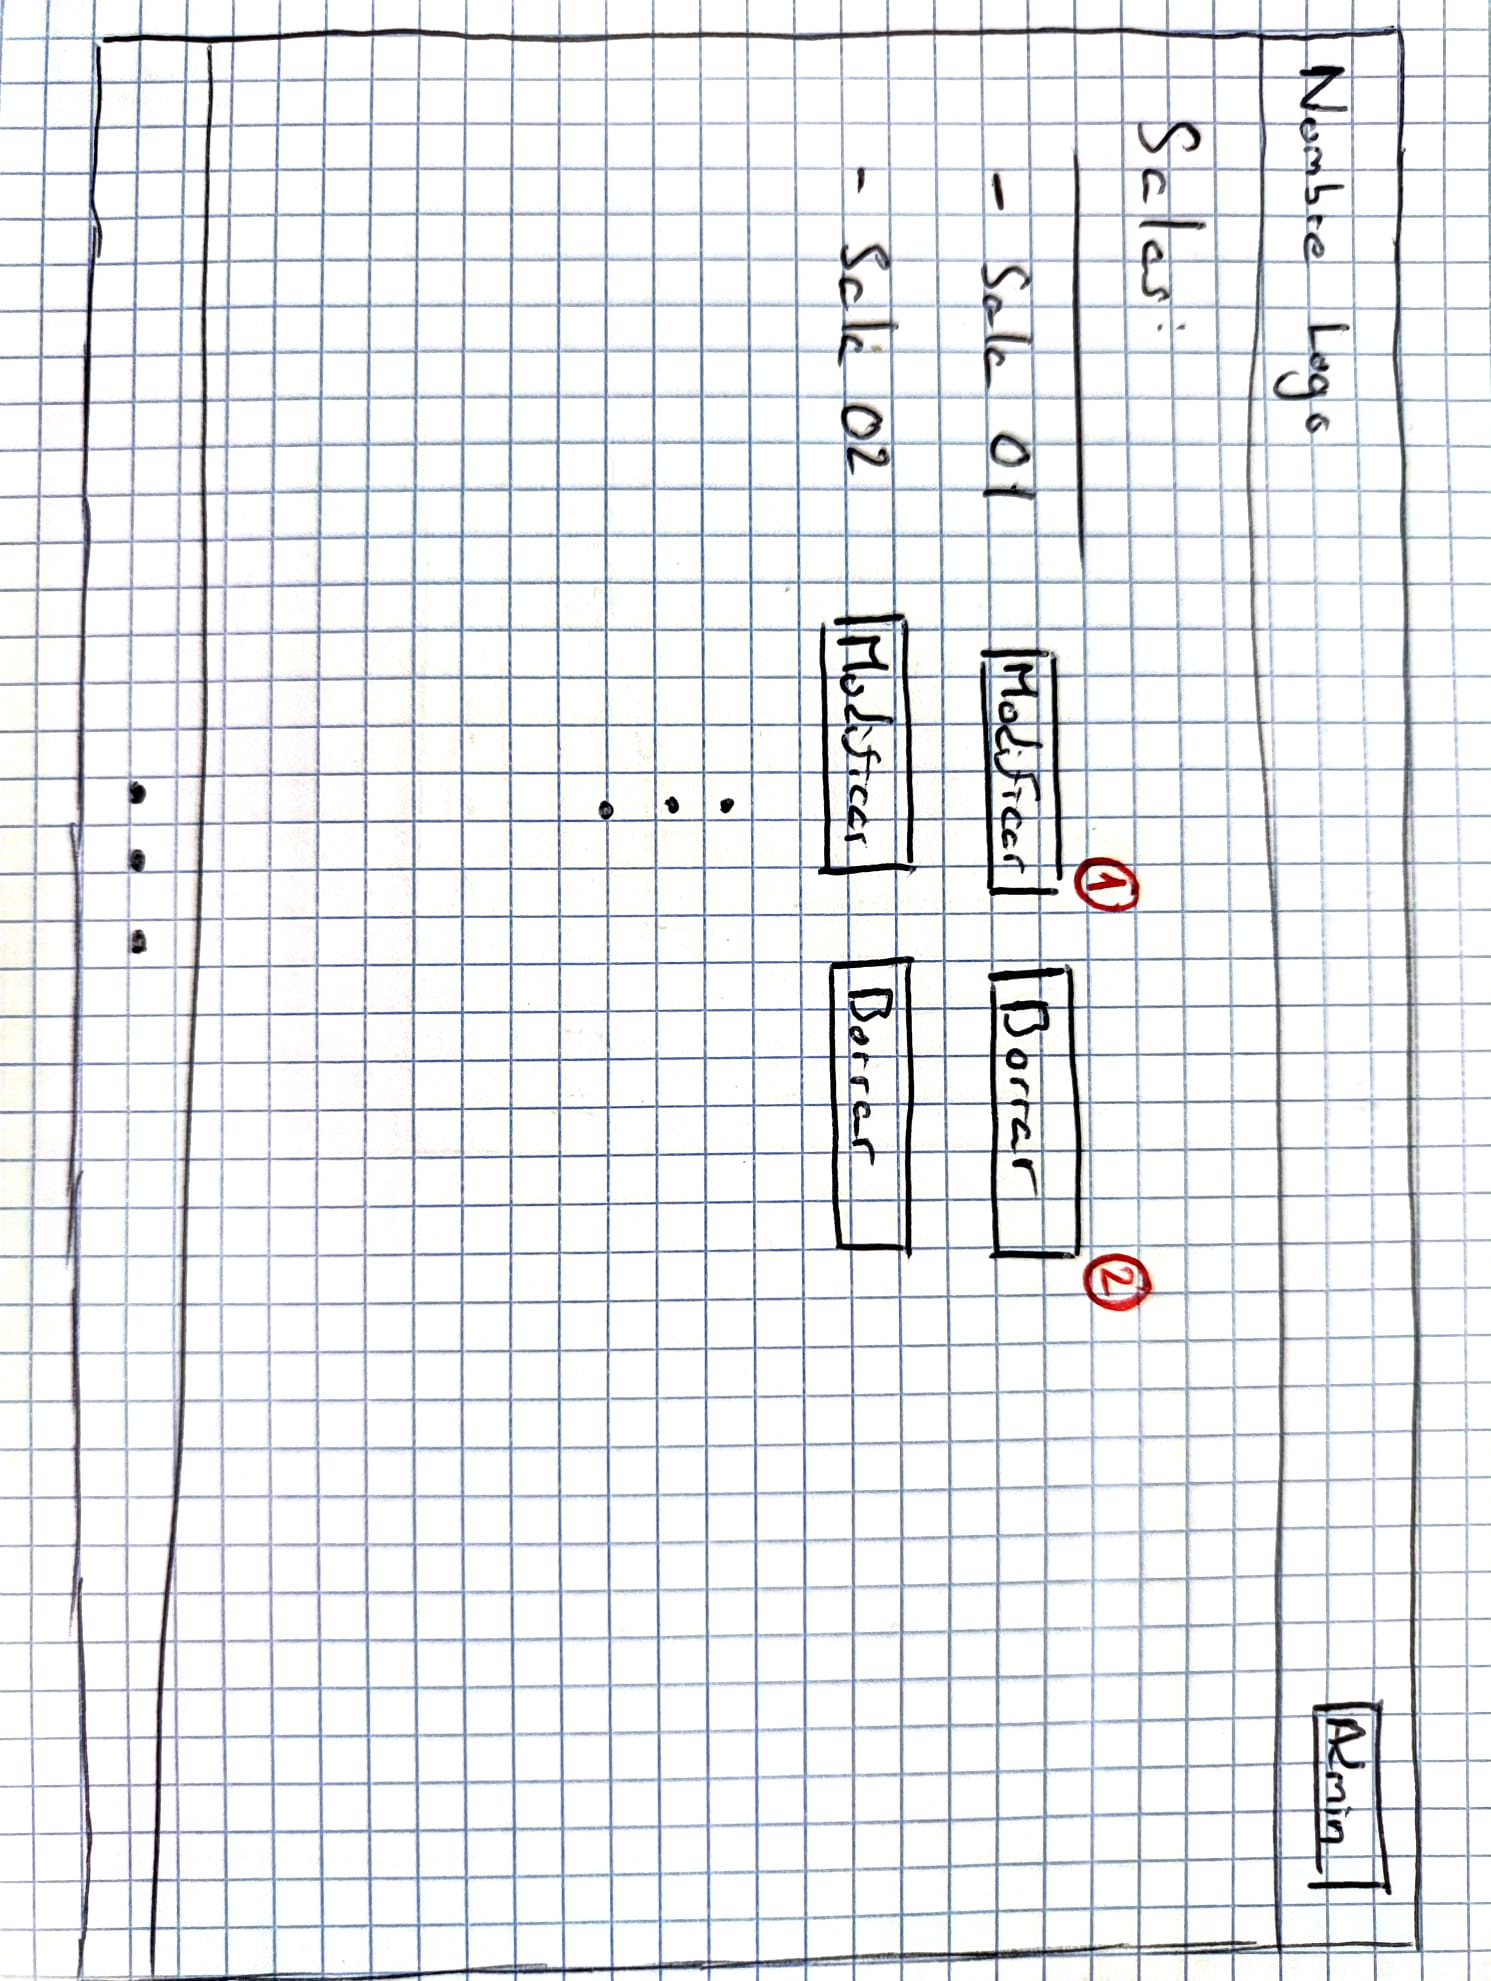 Nombre Logo
Admin
Salas:
1
2
- Sala 01 Modificar Borrar
- Sala 02 Modificar Borrar